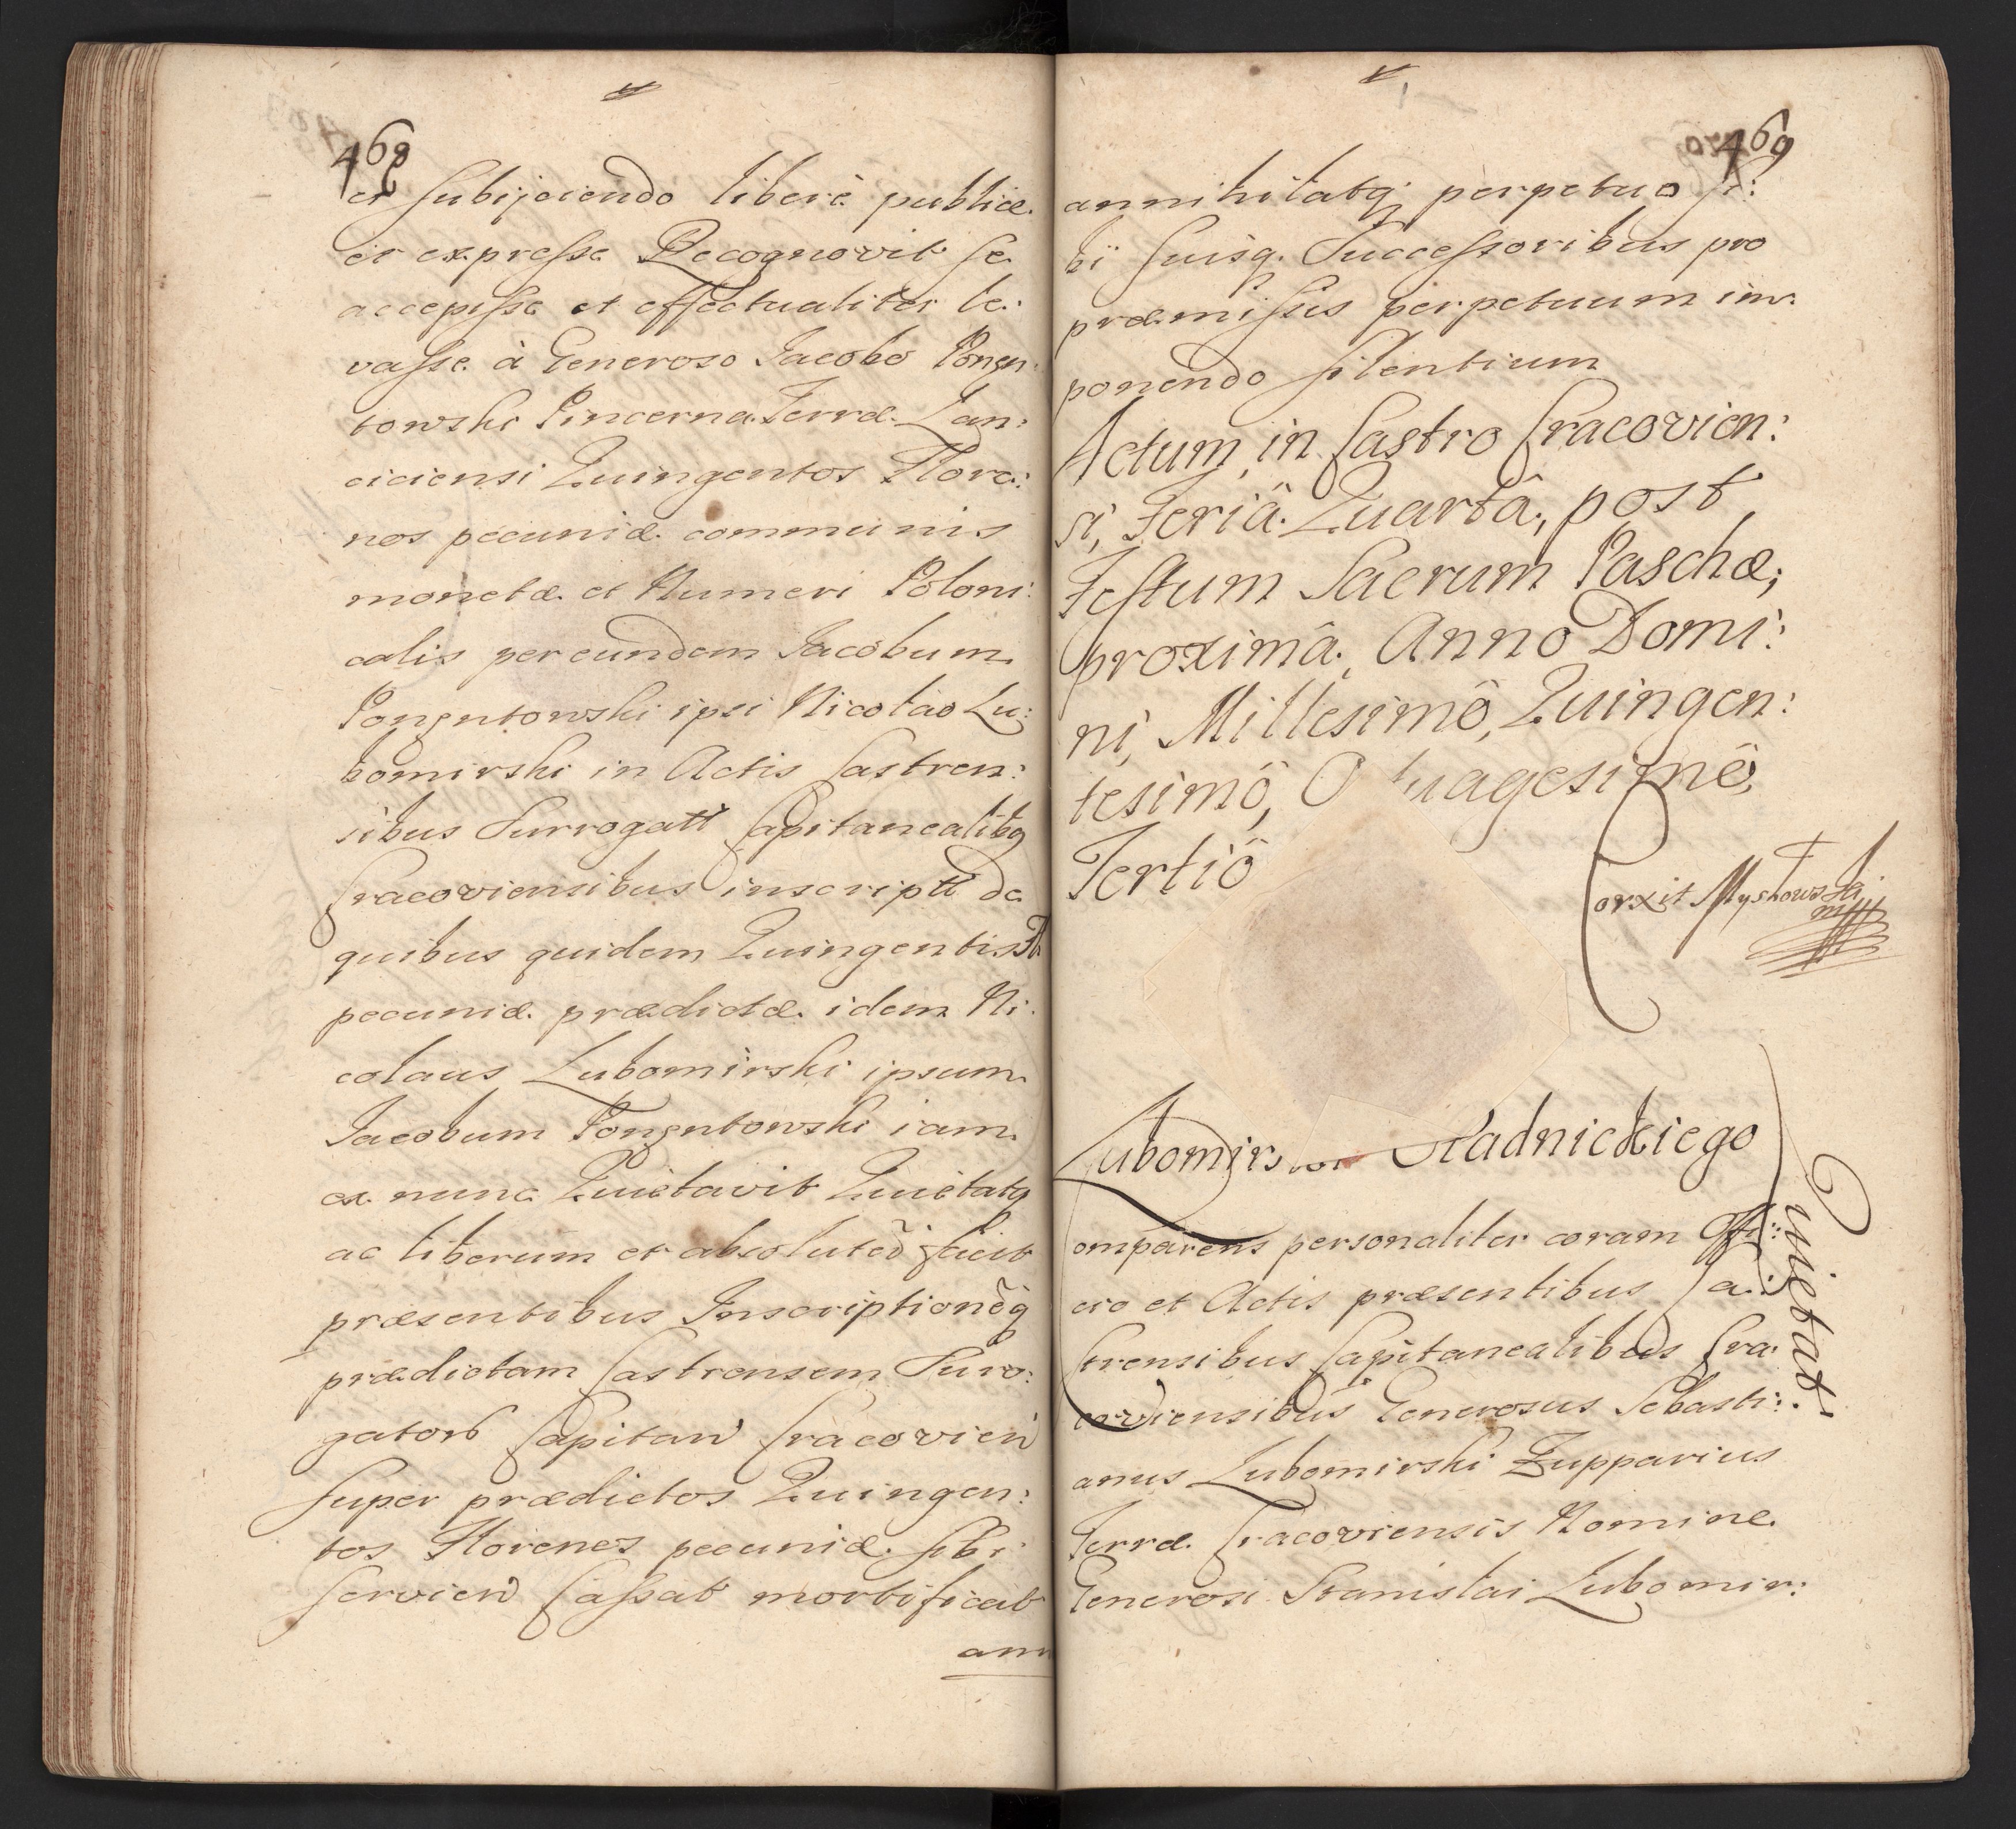 468
et subijciendo liberè publicæ
et expresse Recognovit se
accepisse et effectualiter le:
vasse à Generoso Jacobo Pongn:
towski Pincerna Terræ Lan:
ciciensi Quingentos Flore:
nos pecuniæ communis
monetæ et Numeri Poloni:
calis per eundem Jacobum
Pongntowski ipsi Nicolao Lu:
bomirski in Actis Castren:
sibus Surrogatt Capitanealibq
Cracoviensibus inscriptt de
quibus quidem Quingentis Fl
pecuniæ prædictæ idem Ni:
colaus Lubomirski ipsum
Jacobum Pongntowski iam
ex nunc Quietavit Quietatq
ac liberum et absolutũ facit
præsentibus Inscriptionẽq
prædictam Castrensem Surro:
gators Capitan Cracovien
super prædictos Quingen:
tos Florenos pecuniæ sibi
servien Cassat mortificat
ann
469
annihilatq perpetuo si:
bi suisq. Successoribus pro
præmissis perpetuum im:
ponendo silentium
Actum in Castro Cracovien:
si, Feriâ Quartâ, post
Festum Sacrum Paschæ,
proximâ, Anno Domi:
ni, Millesimô, Quingen:
tesimô, O tuagesimô,
Tertiô
Corxit Myszkowski
mpp
Lubomirs Stadnickiego
Quietat.
Comparens personaliter coram Offi:
cio et Actis præsentibus Ca:
strensibus Capitanealibus Cra:
coviensibus Generosus Sebasti:
anus Lubomirski Zupparius
Terræ Cracoviensis Nomine
Generosi Stanislai Lubomir: